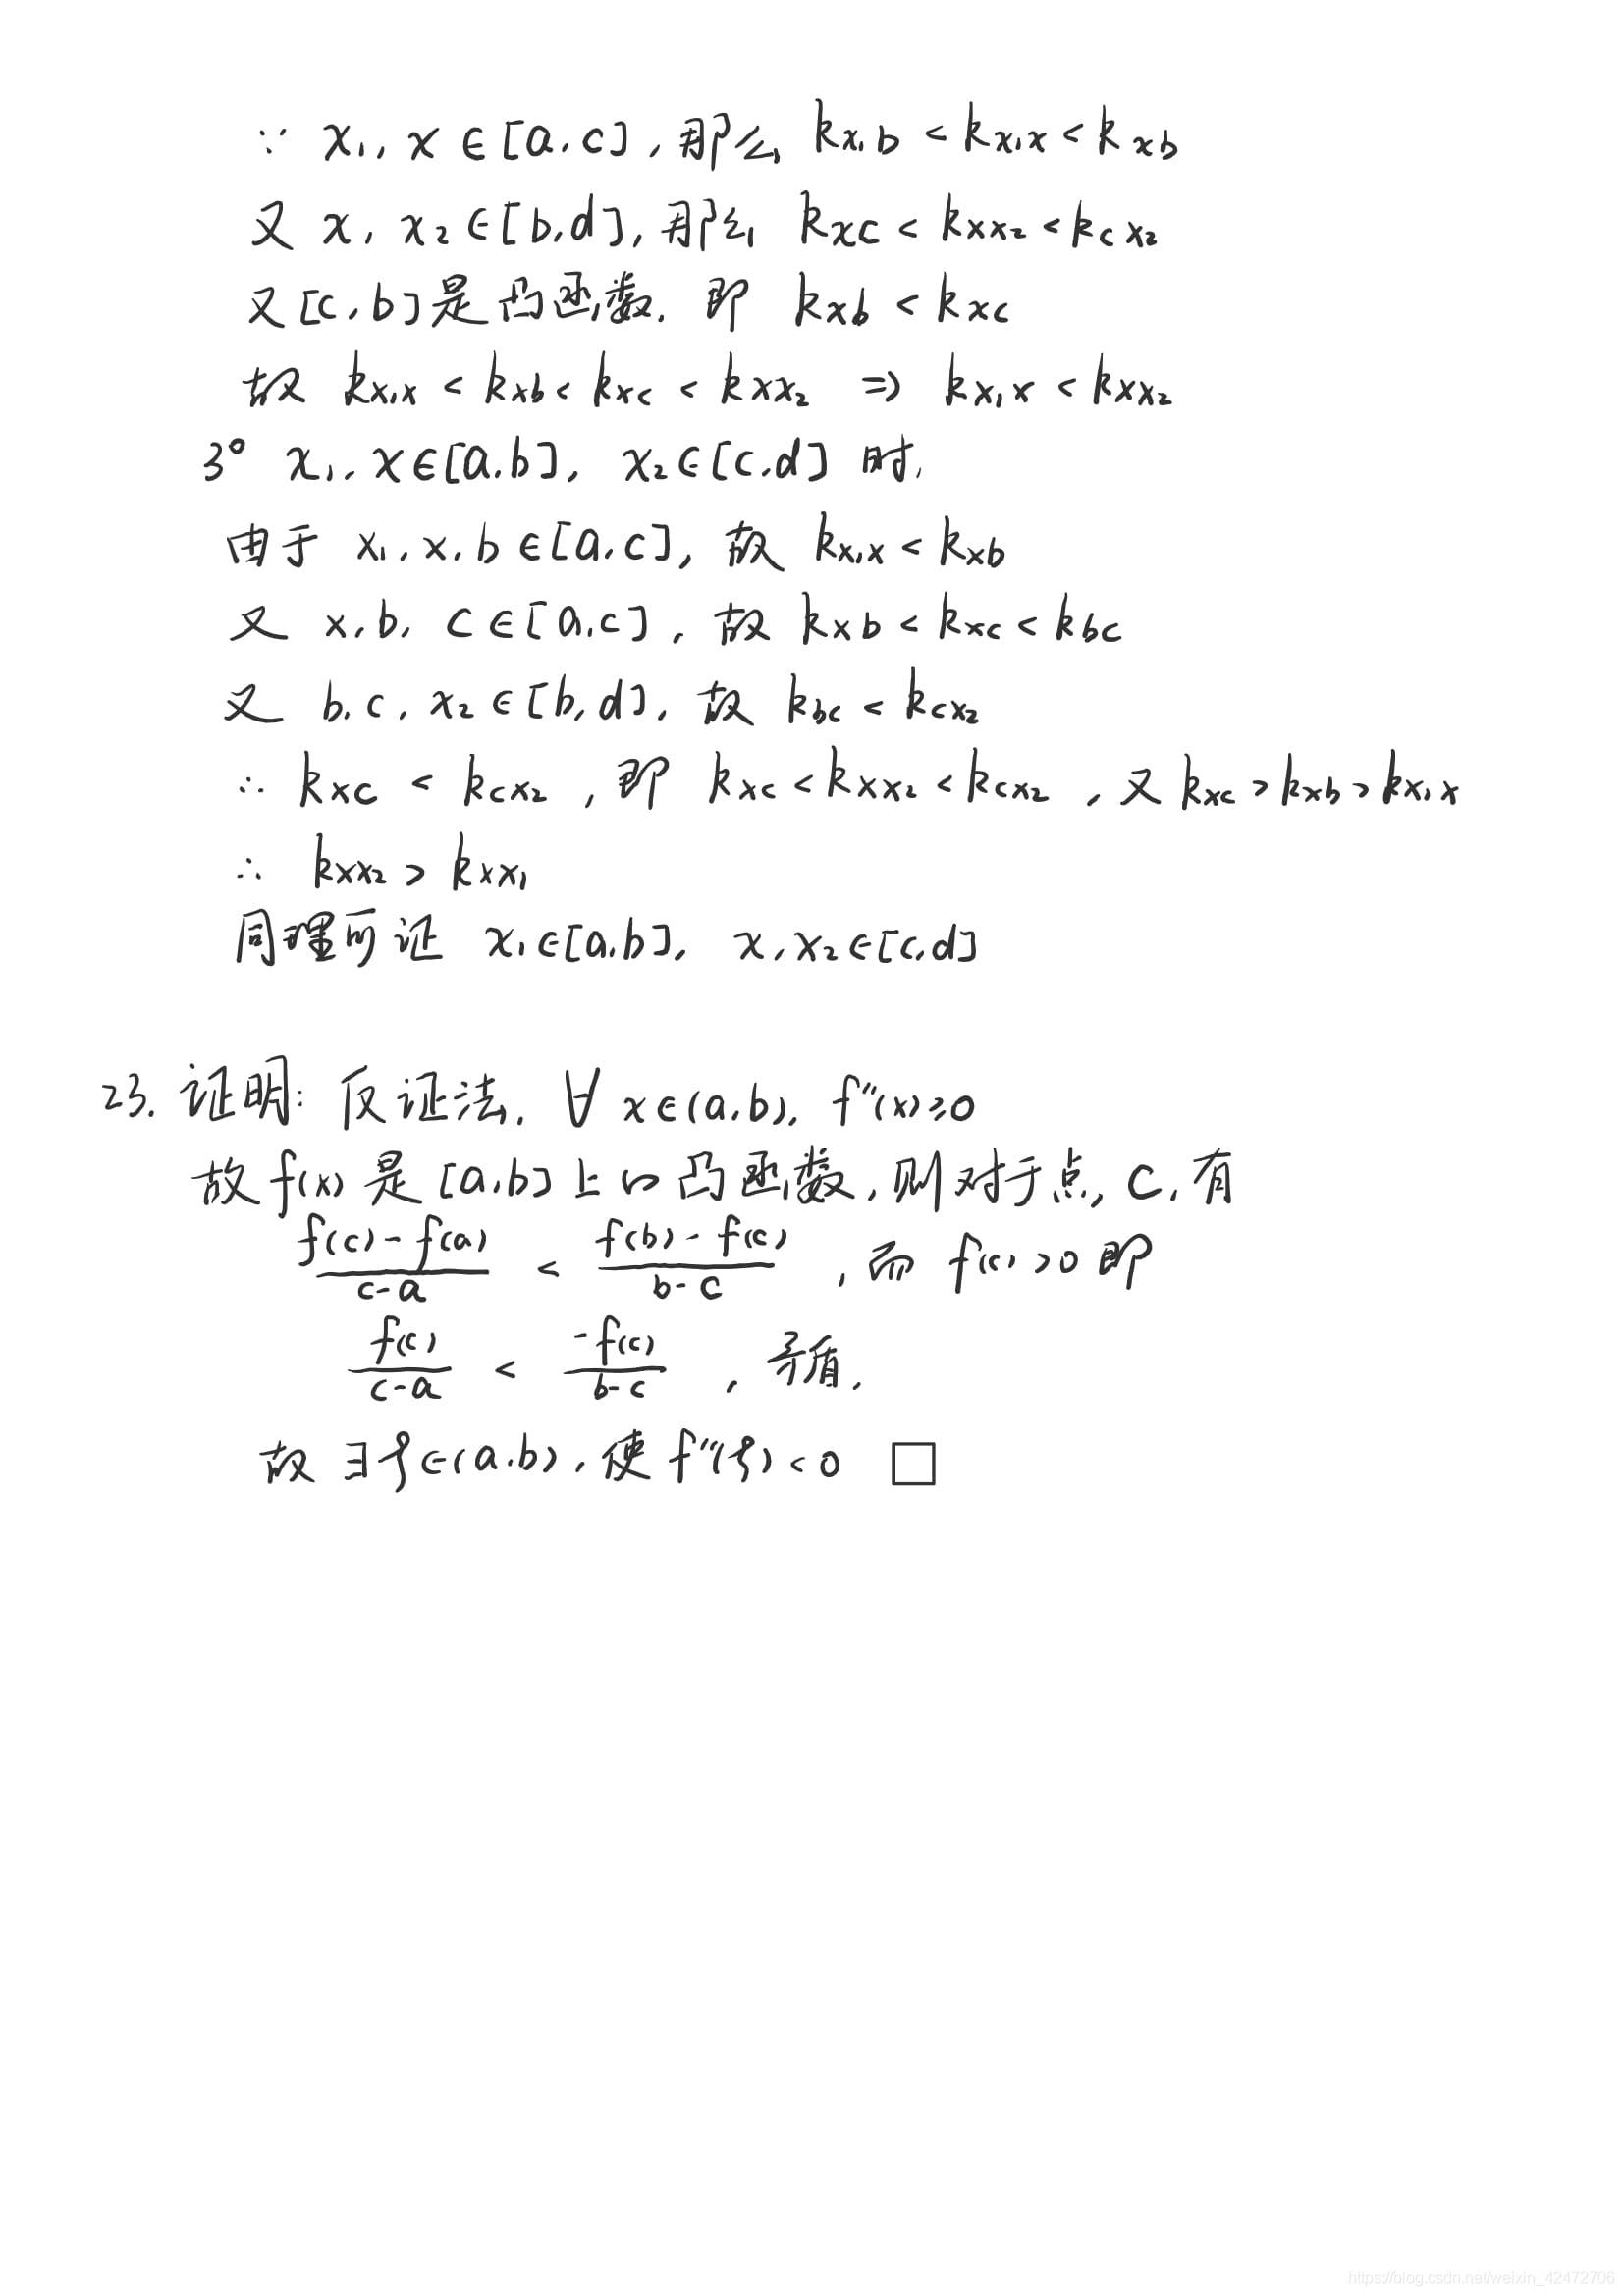 ∵ x₁, x ∈ [a, c], 那么 k_{x₁b} < k_{x₁x} < k_{xb}
又 x, x₂ ∈ [b, d], 那么 k_{xc} < k_{xx₂} < k_{cx₂}
又 [c, b] 是凸函数. 即 k_{xb} < k_{xc}
故 k_{x₁x} < k_{xb} < k_{xc} < k_{xx₂} ⇒ k_{x₁x} < k_{xx₂}
3° x₁, x ∈ [a, b], x₂ ∈ [c, d] 时,
由于 x₁, x, b ∈ [a, c], 故 k_{x₁x} < k_{xb}
又 x, b, c ∈ [a, c], 故 k_{xb} < k_{xc} < k_{bc}
又 b, c, x₂ ∈ [b, d], 故 k_{bc} < k_{cx₂}
∴ k_{xc} < k_{cx₂}, 即 k_{xc} < k_{xx₂} < k_{cx₂}, 又 k_{xc} > k_{xb} > k_{x₁x}
∴ k_{xx₂} > k_{xx₁}
同理可证 x₁ ∈ [a, b], x, x₂ ∈ [c, d]
23. 证明: 反证法. ∀ x ∈ (a, b), f''(x) ≥ 0
故 f(x) 是 [a, b] 上的凸函数, 则对于点, c, 有
(f(c) - f(a))/(c - a) < (f(b) - f(c))/(b - c), 而 f(c) > 0 即
f(c)/(c - a) < -f(c)/(b - c), 矛盾.
故 ∃ ξ ∈ (a, b), 使 f''(ξ) < 0 □
https://blog.csdn.net/weixin_42472706